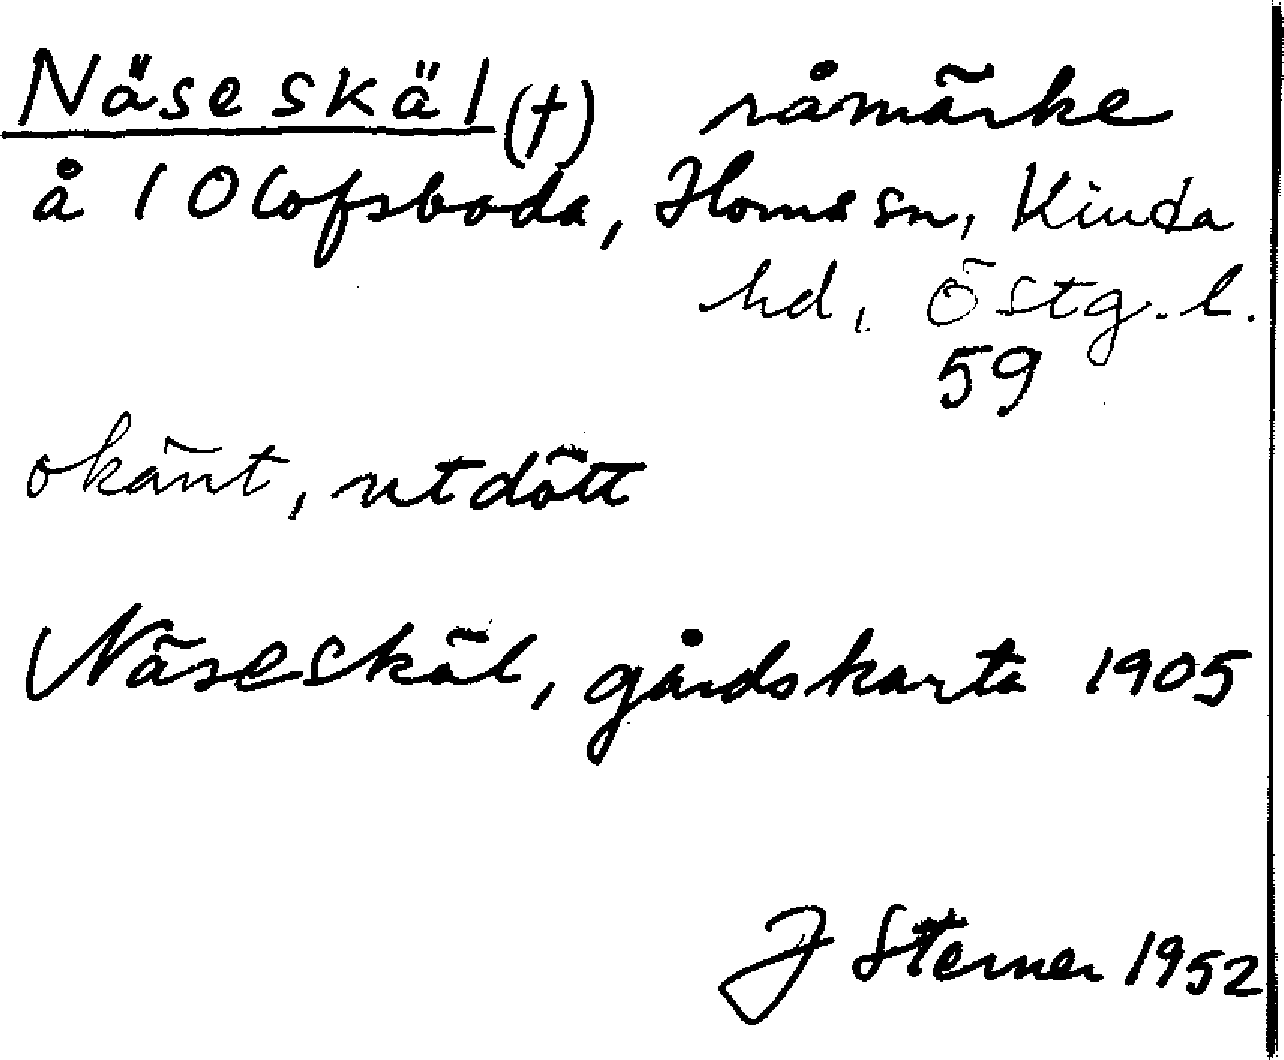 Näseskäl (†) råmärke
å 1 Olofsboda, Horns sn, Kinda
hd, Östg. l.
59
okänt, utdött
Näseskäl, gårdskarta 1905
J Sterner 1952